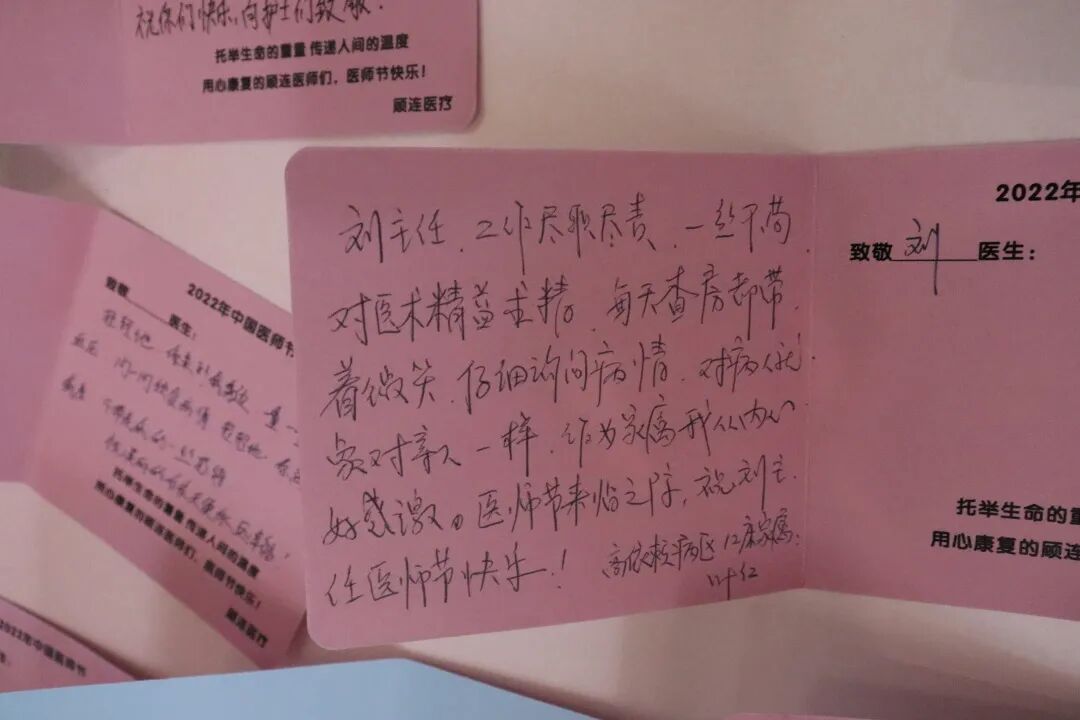 祝你们快乐,向护士们致敬.
托举生命的重量 传递人间的温度
用心康复的顾连医师们，医师节快乐！
顾连医疗
刘主任、工作尽职尽责、一丝不苟
对医术精益求精、每天查房都带
着微笑、仔细询问病情、对病人就
象对亲人一样、作为家属我从内心
好感激。医师节来临之际，祝刘主
任医师节快乐！
高依赖病区12床家属:
2022年
致敬 刘 医生：
托举生命的重
用心康复的顾连
2022年中国医师节
致敬 医生：
托举生命的重量 传递人间的温度
用心康复的顾连医师们，医师节快乐！
顾连医疗
2022年中国医师节